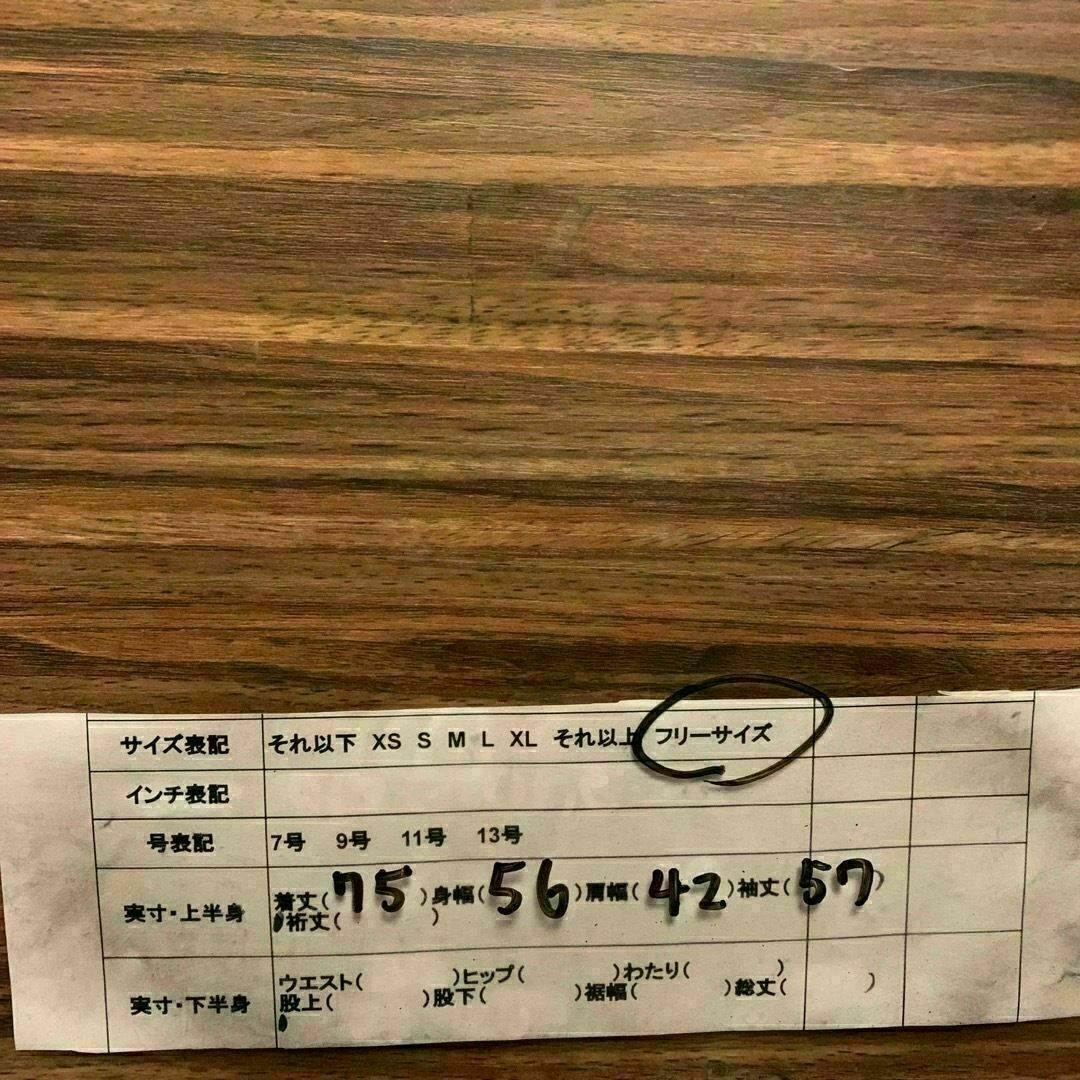 サイズ表記 それ以下 XS S M L XL それ以上 フリーサイズ
インチ表記
号表記 7号 9号 11号 13号
実寸・上半身 着丈(75)身幅(56)肩幅(42)袖丈(57)
裄丈( )
実寸・下半身 ウエスト( )ヒップ( )わたり( )
股上( )股下( )裾幅( )総丈( )